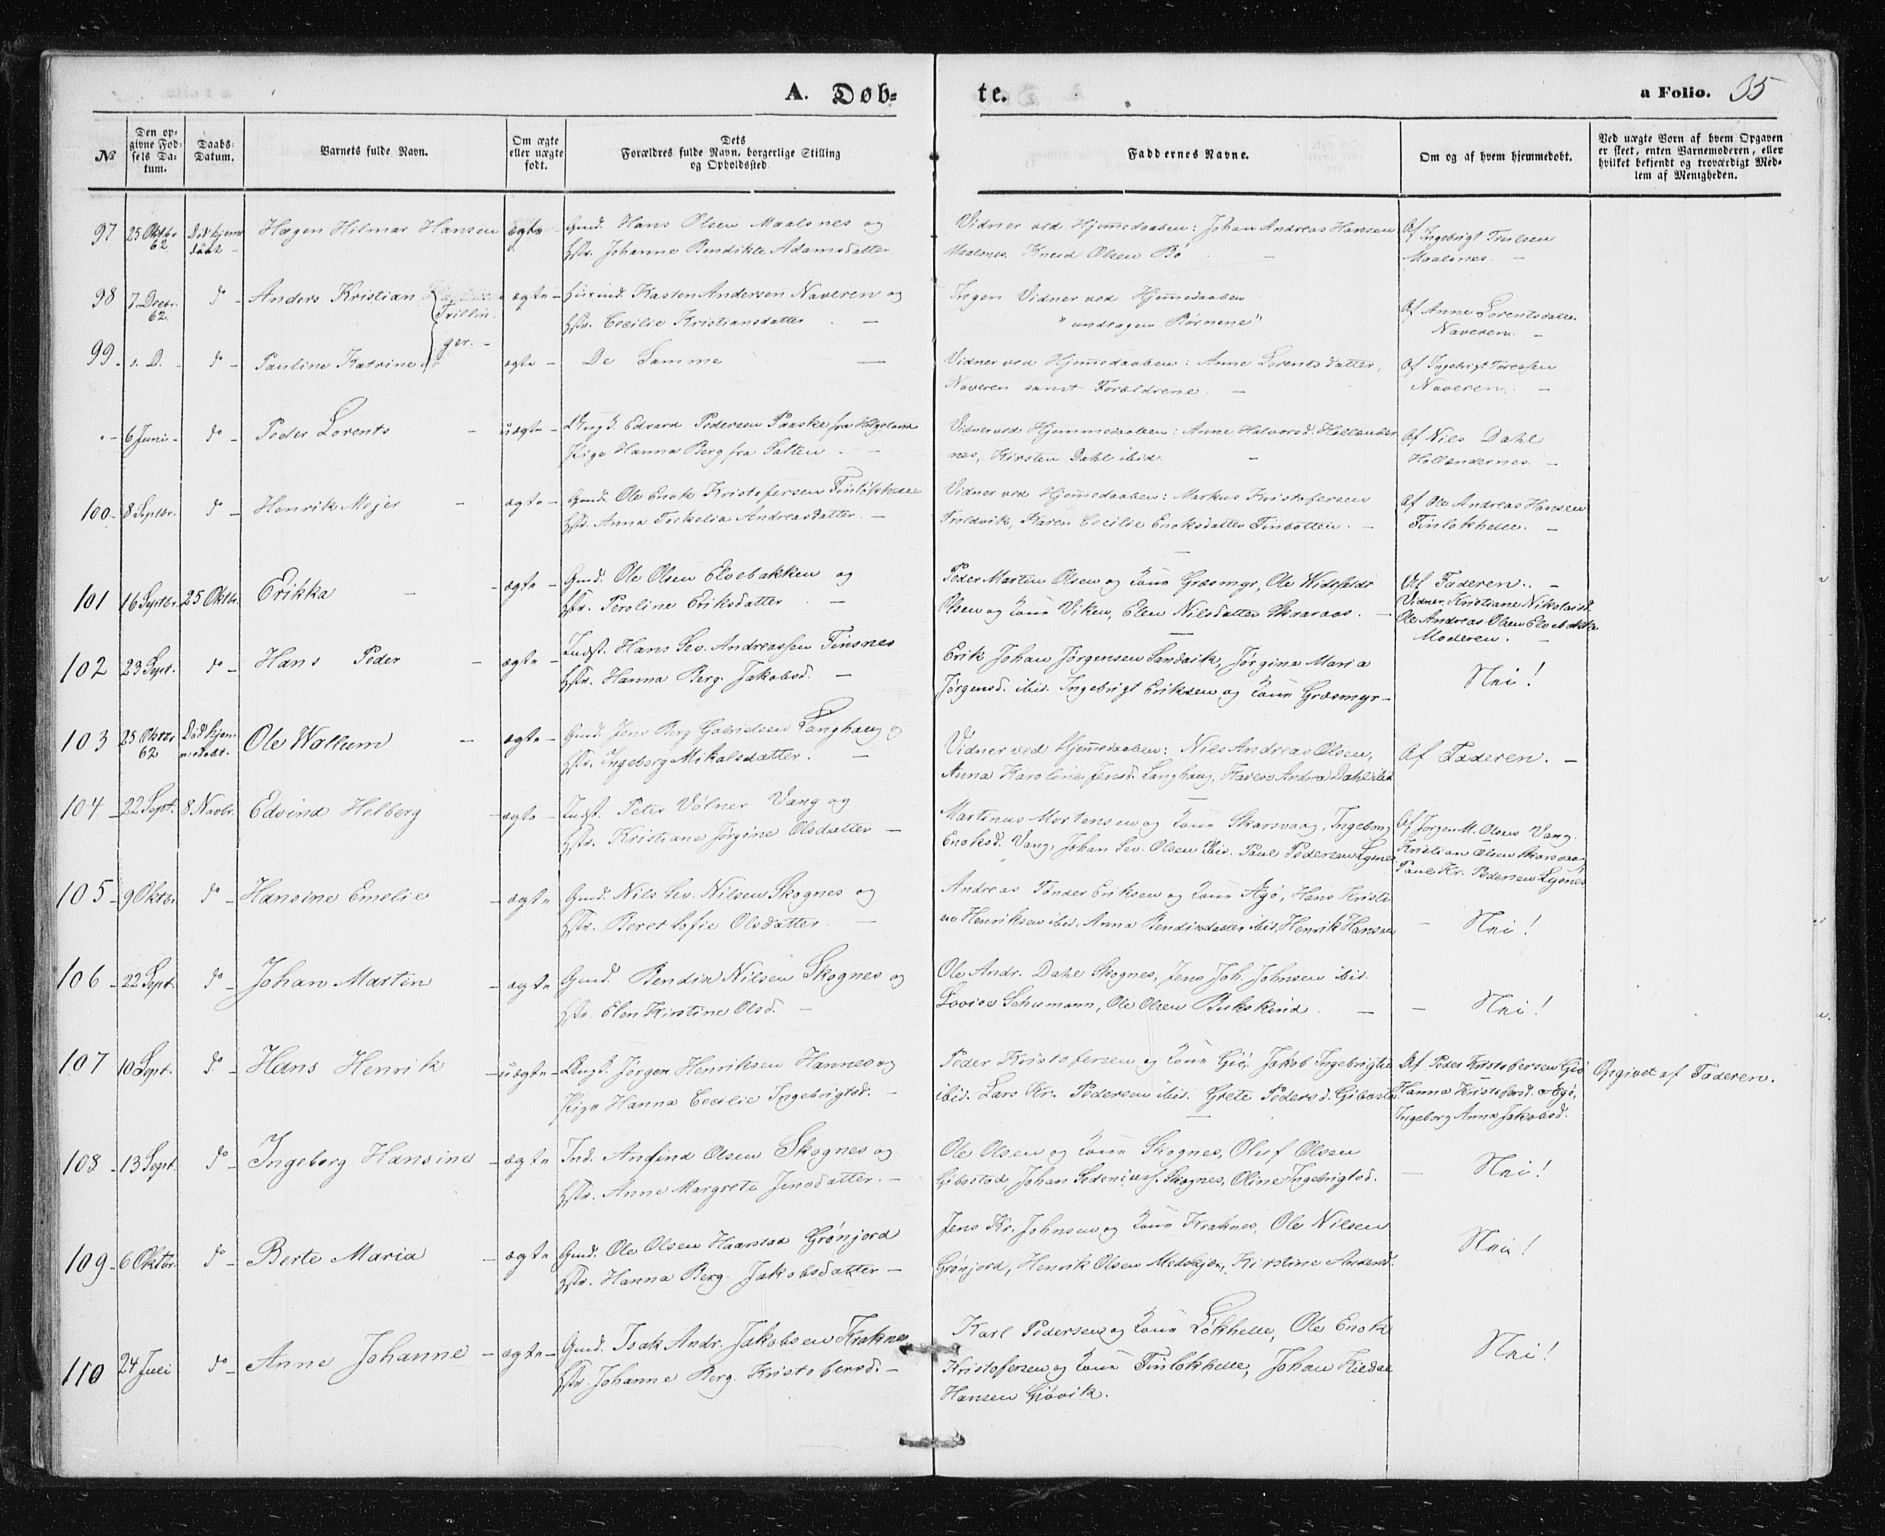 A. Døb-
te.
a Folio. 35
No
Den op-
givne Fød-
sels Da-
tum.
Daabs-
Datum.
Barnets fulde Navn.
Om ægte
eller uægte
født.
Dets
Forældres fulde Navn, borgerlige Stilling
og Opholdssted.
Faddernes Navne.
Om og af hvem hjemmedøbt.
Ved uægte Born af hvem Opgaven
er skeet, enten Barnemoderen, eller
hvilket bekjendt og troværdigt Med-
lem af Menigheden.
97 25 Oktbr. 62 Hagen Hilmar Hansen ægte - Gmd. Hans Olsen Maalsnes og
Hstr. Johanne Bendikte Adamsdatter
Vidner ved Hjemmedaaben: Johan Andreas Hansen
Maalsnes. Knud Olsen Bø -
Af Ingebrigt Truelsen
Maalsnes. -
98 7 Decbr. 62 do - Anders Kristian ægte - Huusmd. Kasten Andersen Naveren og
Hstr. Cecilie Kristiansdatter -
Trillin-
ger. -
Ingen Vidner ved Hjemmedaaben
"undtagen Børnene"
Af Anne Lorentsdatter
Naveren. -
99 s. D. do - Pauline Katrine ægte - De Samme -
Vidner ved Hjemmedaaben: Anne Lorentsdatter,
Naveren samt Forældrene -
Af Ingebrigt Toresen
Naveren. -
- 6 Juni - do - Peder Lorents - uægte - Ungk. Edvard Pedersen Paaske fra Helgeland
Pige Hanna Berg fra Salten. -
Vidner ved Hjemmedaaben: Anne Halvorsd. Hollender
nes, Kirsten Dahl ibid. -
Af Nils Dahl
Hollendernes. -
100 - 8 Septbr. do - Henrik Mejer - ægte - Gmd. Ole Enok Kristofersen Finløkhelle
Hstr. Anna Torkelia Andreasdatter. -
Vidner ved Hjemmedaaben: Markus Kristofersen
Troldvik, Karen Cecilie Enoksdatter Finbotten. -
Af Ole Andreas Hansen
Finløkhelle. -
101 16 Septbr. 25 Oktbr. Erikka - ægte - Gmd. Ole Olsen Elvebakken og
Hstr. Peroline Eriksdatter -
Peder Martin Olsen og Kone Græsmyr, Ole Widsfeldt
Olsen og Kone Viken, Elen Nilsdatter Skraraas. -
Af Faderen. -
Vidner, Kristiane Nikolaisd.
Ole Andreas Olsen Elvebakke
Moderen. -
102 23 Sept. do - Hans Peder - ægte - Indst. Hans Sev. Andreassen Finsnes
Hstr. Hanna Berg. Jakobsd. -
Erik Johan Jørgensen Sandvik, Jørgine Maria
Jørgensd. ibid. Ingebrigt Eriksen og Kone Græsmyr -
Nei!
103 25 Oktbr. 62 Død hjem-
medøbt. Ole Walkum - ægte - Gmd. Jens Berg Gabrielsen Langhaug og
Hstr. Ingeborg Mikalsdatter. -
Vidner ved Hjemmedaaben: Nils Andreas Olsen,
Anna Karoline Jensd. Langhaug, Karen Andrea Dahl ibid
Af Faderen. -
104 - 22 Sept. 8 Novbr. Edvind Helberg - ægte - Indst. Peter Vølner Vang og
Hstr. Kristiane Jørgine Olsdatter -
Martinus Mortensen og Kone Skarsvaag, Ingeborg
Enoksd. Vang, Johan Sev. Olsen ibid. Paul Pedersen Lysnes
Af Jørgen M. Olsen Vang.
Kristian Olsen Skarsvaag
Paul Kr. Pedersen Lysnes
105 - 9 Oktbr. do - Hansine Emelie - ægte - Gmd. Nils Sev. Nilsen Skognes og
Hstr. Beret Sofie Olsdatter. -
Andreas Tønder Eriksen og Kone Agø, Hans Kristi
an Henriksen ibid. Anna Bendixdatter ibid. Henrik Hansen
- Nei!
106 - 22 Sept. do - Johan Martin - ægte - Gmd. Bendix Nilsen Skognes og
Hstr. Elen Kirstine Olsd. -
Ole Andr. Dahl Skognes, Jens Joh. Johnsen ibid.
Lovise Schumann, Ole Olsen Bukskind. -
- Nei!
107 - 10 Sept. do - Hans Henrik - uægte - Ungk. Jørgen Henriksen Hannes og
Pige Hanna Cecilie Ingebrigtsd. -
Peder Kristofersen og Kone Giø, Jakob Ingebrigtsen
ibid. Lars Kr. Pedersen ibid. Grete Pedersd. Gibostad
Af Peder Kristofersen Giø
Hanna Kristofersd. Agø,
Ingeborg Anna Jakobsd.
Opgivet af Faderen.
108 - 13 Sept. do - Ingeborg Hansine - ægte Ind. Anfind Olsen Skognes og
Hstr. Anne Margrete Jensdatter. -
Ole Olsen og Kone Skognes, Oluf Olsen
Gibostad, Johan Sedeniusf. Skognes, Oline Ingebrigtsd.
- Nei!
109 - 6 Oktbr. do - Berte Maria - ægte Gmd. Ole Olsen Haarstad Grønjord
Hstr. Hanna Berg. Jakobsdatter -
Jens Kr. Johnsen og Kone Kraknes, Ole Nilsen
Grønjord, Henrik Olsen Medskjer, Kirstine Andersd.
Nei!
110 24 Juli do - Anne Johanne - ægte - Gmd. Isak Andr. Jakobsen Kraknes
Hstr. Johanne Berg. Kristofersd. -
Karl Pedersen og Kone Løkhelle, Ole Enok
Kristofersen og Kone Finløkhelle, Johan Kildal
Hansen Gjøvik.
Nei!